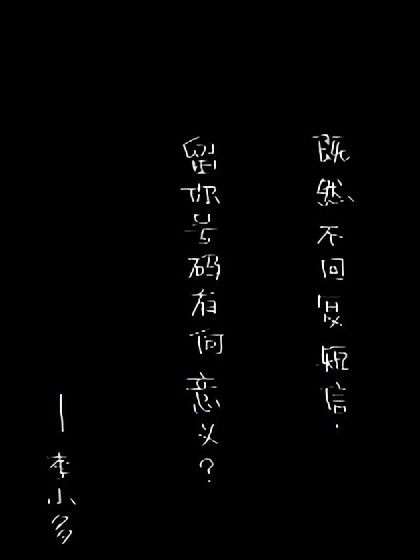 既然不回复短信.
留你号码有何意义?
—李小多